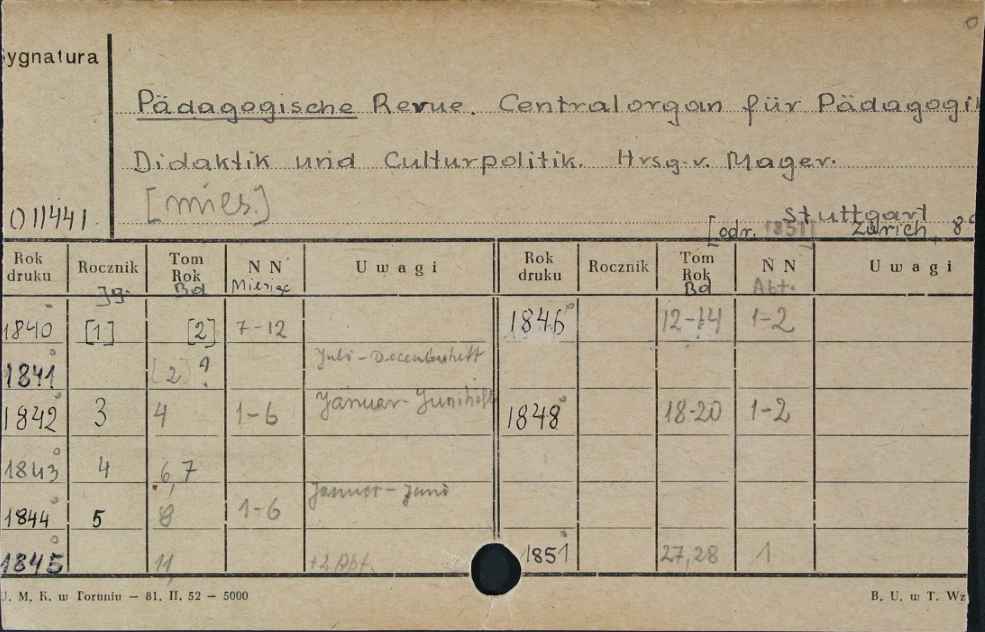 ygnatura
Pädagogische Revue. Centralorgan für Pädagogi
Didaktik und Culturpolitik. Hrsg. v. Mager.
[mies.]
011441.
Stuttgart
[odr. 1851] Zürich, 8
Rok druku Rocznik Tom Rok N N Uwagi Rok druku Rocznik Tom Rok N N Uwagi
Jg. Bd Miesiąc Bd Abt.
1840 [1] [2] 7-12 1846 12-14 1-2
1841 [2] ? Juli-Decemberheft
1842 3 4 1-6 Januar-Juniheft 1848 18-20 1-2
1843 4 6,7
1844 5 8 1-6 Januar-Juni
1845 11, 1851 27,28 1
U. M. K. w Toruniu — 81. II. 52 — 5000 B. U. w T. Wz